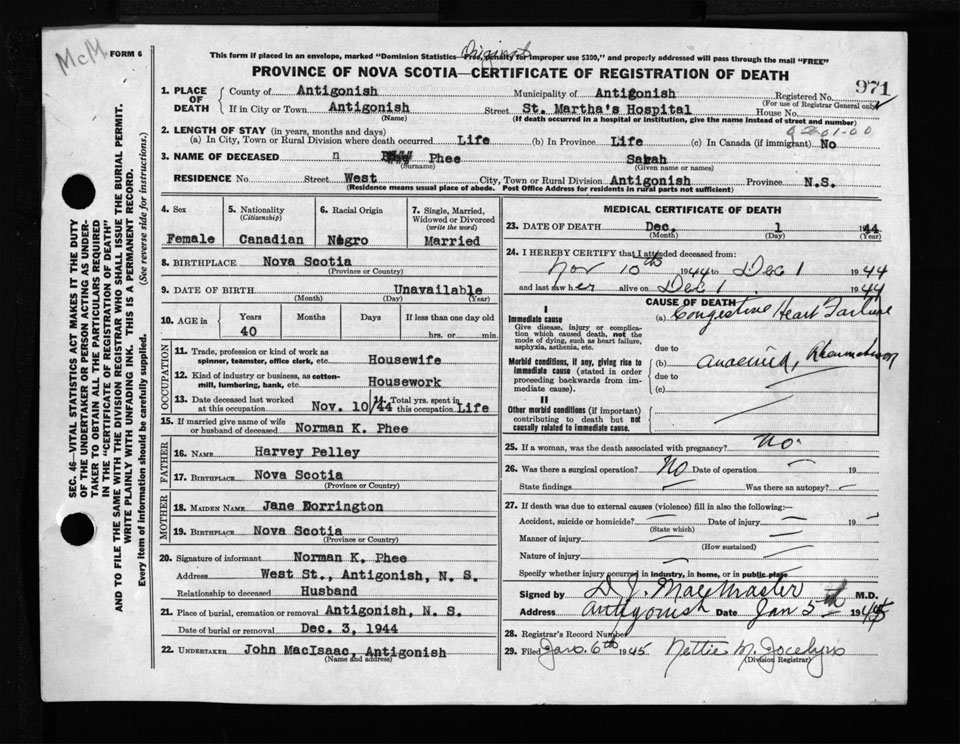 McM.
FORM 6
Original
This form if placed in an envelope, marked "Dominion Statistics—Free, penalty for improper use $300," and properly addressed will pass through the mail "FREE"
PROVINCE OF NOVA SCOTIA—CERTIFICATE OF REGISTRATION OF DEATH
971
1. PLACE OF DEATH County of Antigonish Municipality of Antigonish Registered No.
(For use of Registrar General only)
If in City or Town Antigonish Street St. Martha's Hospital House No.
(Name) (If death occurred in a hospital or institution, give the name instead of street and number)
2. LENGTH OF STAY (in years, months and days)
(a) In City, Town or Rural Division where death occurred Life (b) In Province Life (c) In Canada (if immigrant) No
3. NAME OF DECEASED n Phee Sarah
(Surname) (Given name or names)
RESIDENCE No. Street West City, Town or Rural Division Antigonish Province N.S.
(Residence means usual place of abode. Post Office Address for residents in rural parts not sufficient)
4. Sex 5. Nationality (Citizenship) 6. Racial Origin 7. Single, Married, Widowed or Divorced (write the word)
Female Canadian Negro Married
8. BIRTHPLACE Nova Scotia
(Province or Country)
9. DATE OF BIRTH Unavailable
(Month) (Day) (Year)
10. AGE in Years Months Days If less than one day old
40 hrs. or min.
OCCUPATION
11. Trade, profession or kind of work as spinner, teamster, office clerk, etc. Housewife
12. Kind of industry or business, as cotton-mill, lumbering, bank, etc. Housework
13. Date deceased last worked at this occupation Nov. 10/44 14. Total yrs. spent in this occupation Life
15. If married give name of wife or husband of deceased Norman K. Phee
FATHER
16. NAME Harvey Pelley
17. BIRTHPLACE Nova Scotia
(Province or Country)
MOTHER
18. MAIDEN NAME Jane Dorrington
19. BIRTHPLACE Nova Scotia
(Province or Country)
20. Signature of informant Norman K. Phee
Address West St., Antigonish, N. S.
Relationship to deceased Husband
21. Place of burial, cremation or removal Antigonish, N. S.
Date of burial or removal Dec. 3, 1944
22. UNDERTAKER John MacIsaac, Antigonish
(Name and address)
MEDICAL CERTIFICATE OF DEATH
23. DATE OF DEATH Dec. 1 1944
(Month) (Day) (Year)
24. I HEREBY CERTIFY that I attended deceased from:
Nov 10th 1944 to Dec 1 1944
and last saw her alive on Dec 1. 1944
CAUSE OF DEATH
I
Immediate cause (a) Congestive Heart Failure
Give disease, injury or complication which caused death, not the mode of dying, such as heart failure, asphyxia, asthenia, etc.
due to
Morbid conditions, if any, giving rise to immediate cause (stated in order proceeding backwards from immediate cause).
(b)
due to
(c)
II
Other morbid conditions (if important) contributing to death but not causally related to immediate cause.
25. If a woman, was the death associated with pregnancy? No.
26. Was there a surgical operation? No Date of operation 19
State findings Was there an autopsy?
27. If death was due to external causes (violence) fill in also the following:—
Accident, suicide or homicide? Date of injury 19
(State which)
Manner of injury
(How sustained)
Nature of injury
Specify whether injury occurred in industry, in home, or in public place
Signed by D. J. MacMaster M.D.
Address Antigonish Date Jan 5th 1945
28. Registrar's Record Number
29. Filed Jan. 6th 1945 Nettie M.
(Division Registrar)
SEC. 46—VITAL STATISTICS ACT MAKES IT THE DUTY
OF THE UNDERTAKER OR PERSON ACTING AS UNDER-
TAKER TO OBTAIN ALL THE PARTICULARS REQUIRED
IN THE "CERTIFICATE OF REGISTRATION OF DEATH"
AND TO FILE THE SAME WITH THE DIVISION REGISTRAR WHO SHALL ISSUE THE BURIAL PERMIT.
WRITE PLAINLY WITH UNFADING INK. THIS IS A PERMANENT RECORD.
Every item of information should be carefully supplied. (See reverse side for instructions.)